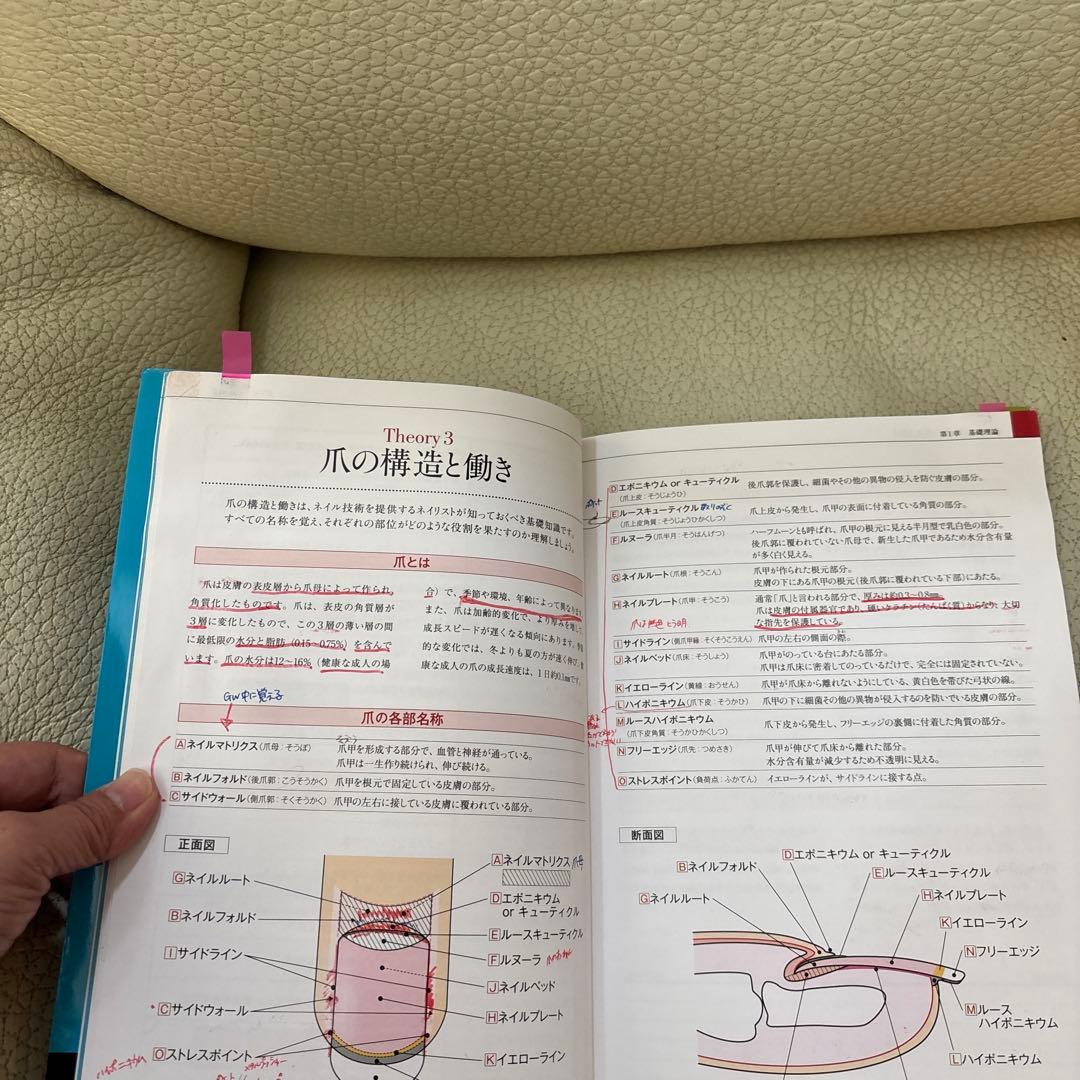 Theory 3
爪の構造と働き
爪の構造と働きは、ネイル技術を提供するネイリストが知っておくべき基礎知識です。
すべての名称を覚え、それぞれの部位がどのような役割を果たすのか理解しましょう。
爪とは
爪は皮膚の表皮層から爪母によって作られ、
角質化したものです。爪は、表皮の角質層が
3層に変化したもので、この3層の薄い層の間
に最低限の水分と脂肪（0.15〜0.75%）を含んで
います。爪の水分は12〜16%（健康な成人の場
合）で、季節や環境、年齢によって異なります
また、爪は加齢的変化で、より厚みを増して
成長スピードが遅くなる傾向にあります。
的な変化では、冬よりも夏の方が速く伸び、
康な成人の爪の成長速度は、1日約0.1mmです。
GW中に覚える
爪の各部名称
Aネイルマトリクス（爪母：そうぼ） 爪甲を形成する部分で、血管と神経が通っている。
爪甲は一生作り続けられ、伸び続ける。
Bネイルフォルド（後爪郭：こうそうかく） 爪甲を根元で固定している皮膚の部分。
Cサイドウォール（側爪郭：そくそうかく） 爪甲の左右に接している皮膚に覆われている部分。
正面図
Gネイルルート
Bネイルフォルド
Iサイドライン
Cサイドウォール
Oストレスポイント
ハイポニキウム
Aネイルマトリクス 爪母
Dエポニキウム
or キューティクル
Eルースキューティクル
Fルヌーラ
Jネイルベッド
Hネイルプレート
Kイエローライン
第1章 基礎理論
Dエポニキウム or キューティクル 後爪郭を保護し、細菌やその他の異物の侵入を防ぐ皮膚の部分。
（爪上皮：そうじょうひ）
Eルースキューティクル 爪上皮から発生し、爪甲の表面に付着している角質の部分。
（爪上皮角質：そうじょうひかくしつ）
Fルヌーラ（爪半月：そうはんげつ） ハーフムーンとも呼ばれ、爪甲の根元に見える半月型で乳白色の部分。
後爪郭に覆われていない爪母で、新生した爪甲であるため水分含有量
が多く白く見える。
Gネイルルート（爪根：そうこん） 爪甲が作られた根元部分。
皮膚の下にある爪甲の根元（後爪郭に覆われている下部）にあたる。
Hネイルプレート（爪甲：そうこう） 通常「爪」と言われる部分で、厚みは約0.3〜0.8mm
爪は皮膚の付属器官であり、硬いケラチン（たんぱく質）からなり、大切
な指先を保護している。
爪は無色とう明
Iサイドライン（側爪甲縁：そくそうこうえん） 爪甲の左右の側面の際。
Jネイルベッド（爪床：そうしょう） 爪甲がのっている台にあたる部分。
爪甲は爪床に密着してのっているだけで、完全には固定されていない。
Kイエローライン（黄線：おうせん） 爪甲が爪床から離れないようにしている、黄白色を帯びた弓状の線。
Lハイポニキウム（爪下皮：そうかひ） 爪甲の下に細菌その他の異物が侵入するのを防いでいる皮膚の部分。
Mルースハイポニキウム 爪下皮から発生し、フリーエッジの裏側に付着した角質の部分。
（爪下皮角質：そうかひかくしつ）
Nフリーエッジ（爪先：つめさき） 爪甲が伸びて爪床から離れた部分。
水分含有量が減少するため不透明に見える。
Oストレスポイント（負荷点：ふかてん） イエローラインが、サイドラインに接する点。
断面図
Dエポニキウム or キューティクル
Bネイルフォルド
Eルースキューティクル
Gネイルルート
Hネイルプレート
Kイエローライン
Nフリーエッジ
Mルース
ハイポニキウム
Lハイポニキウム